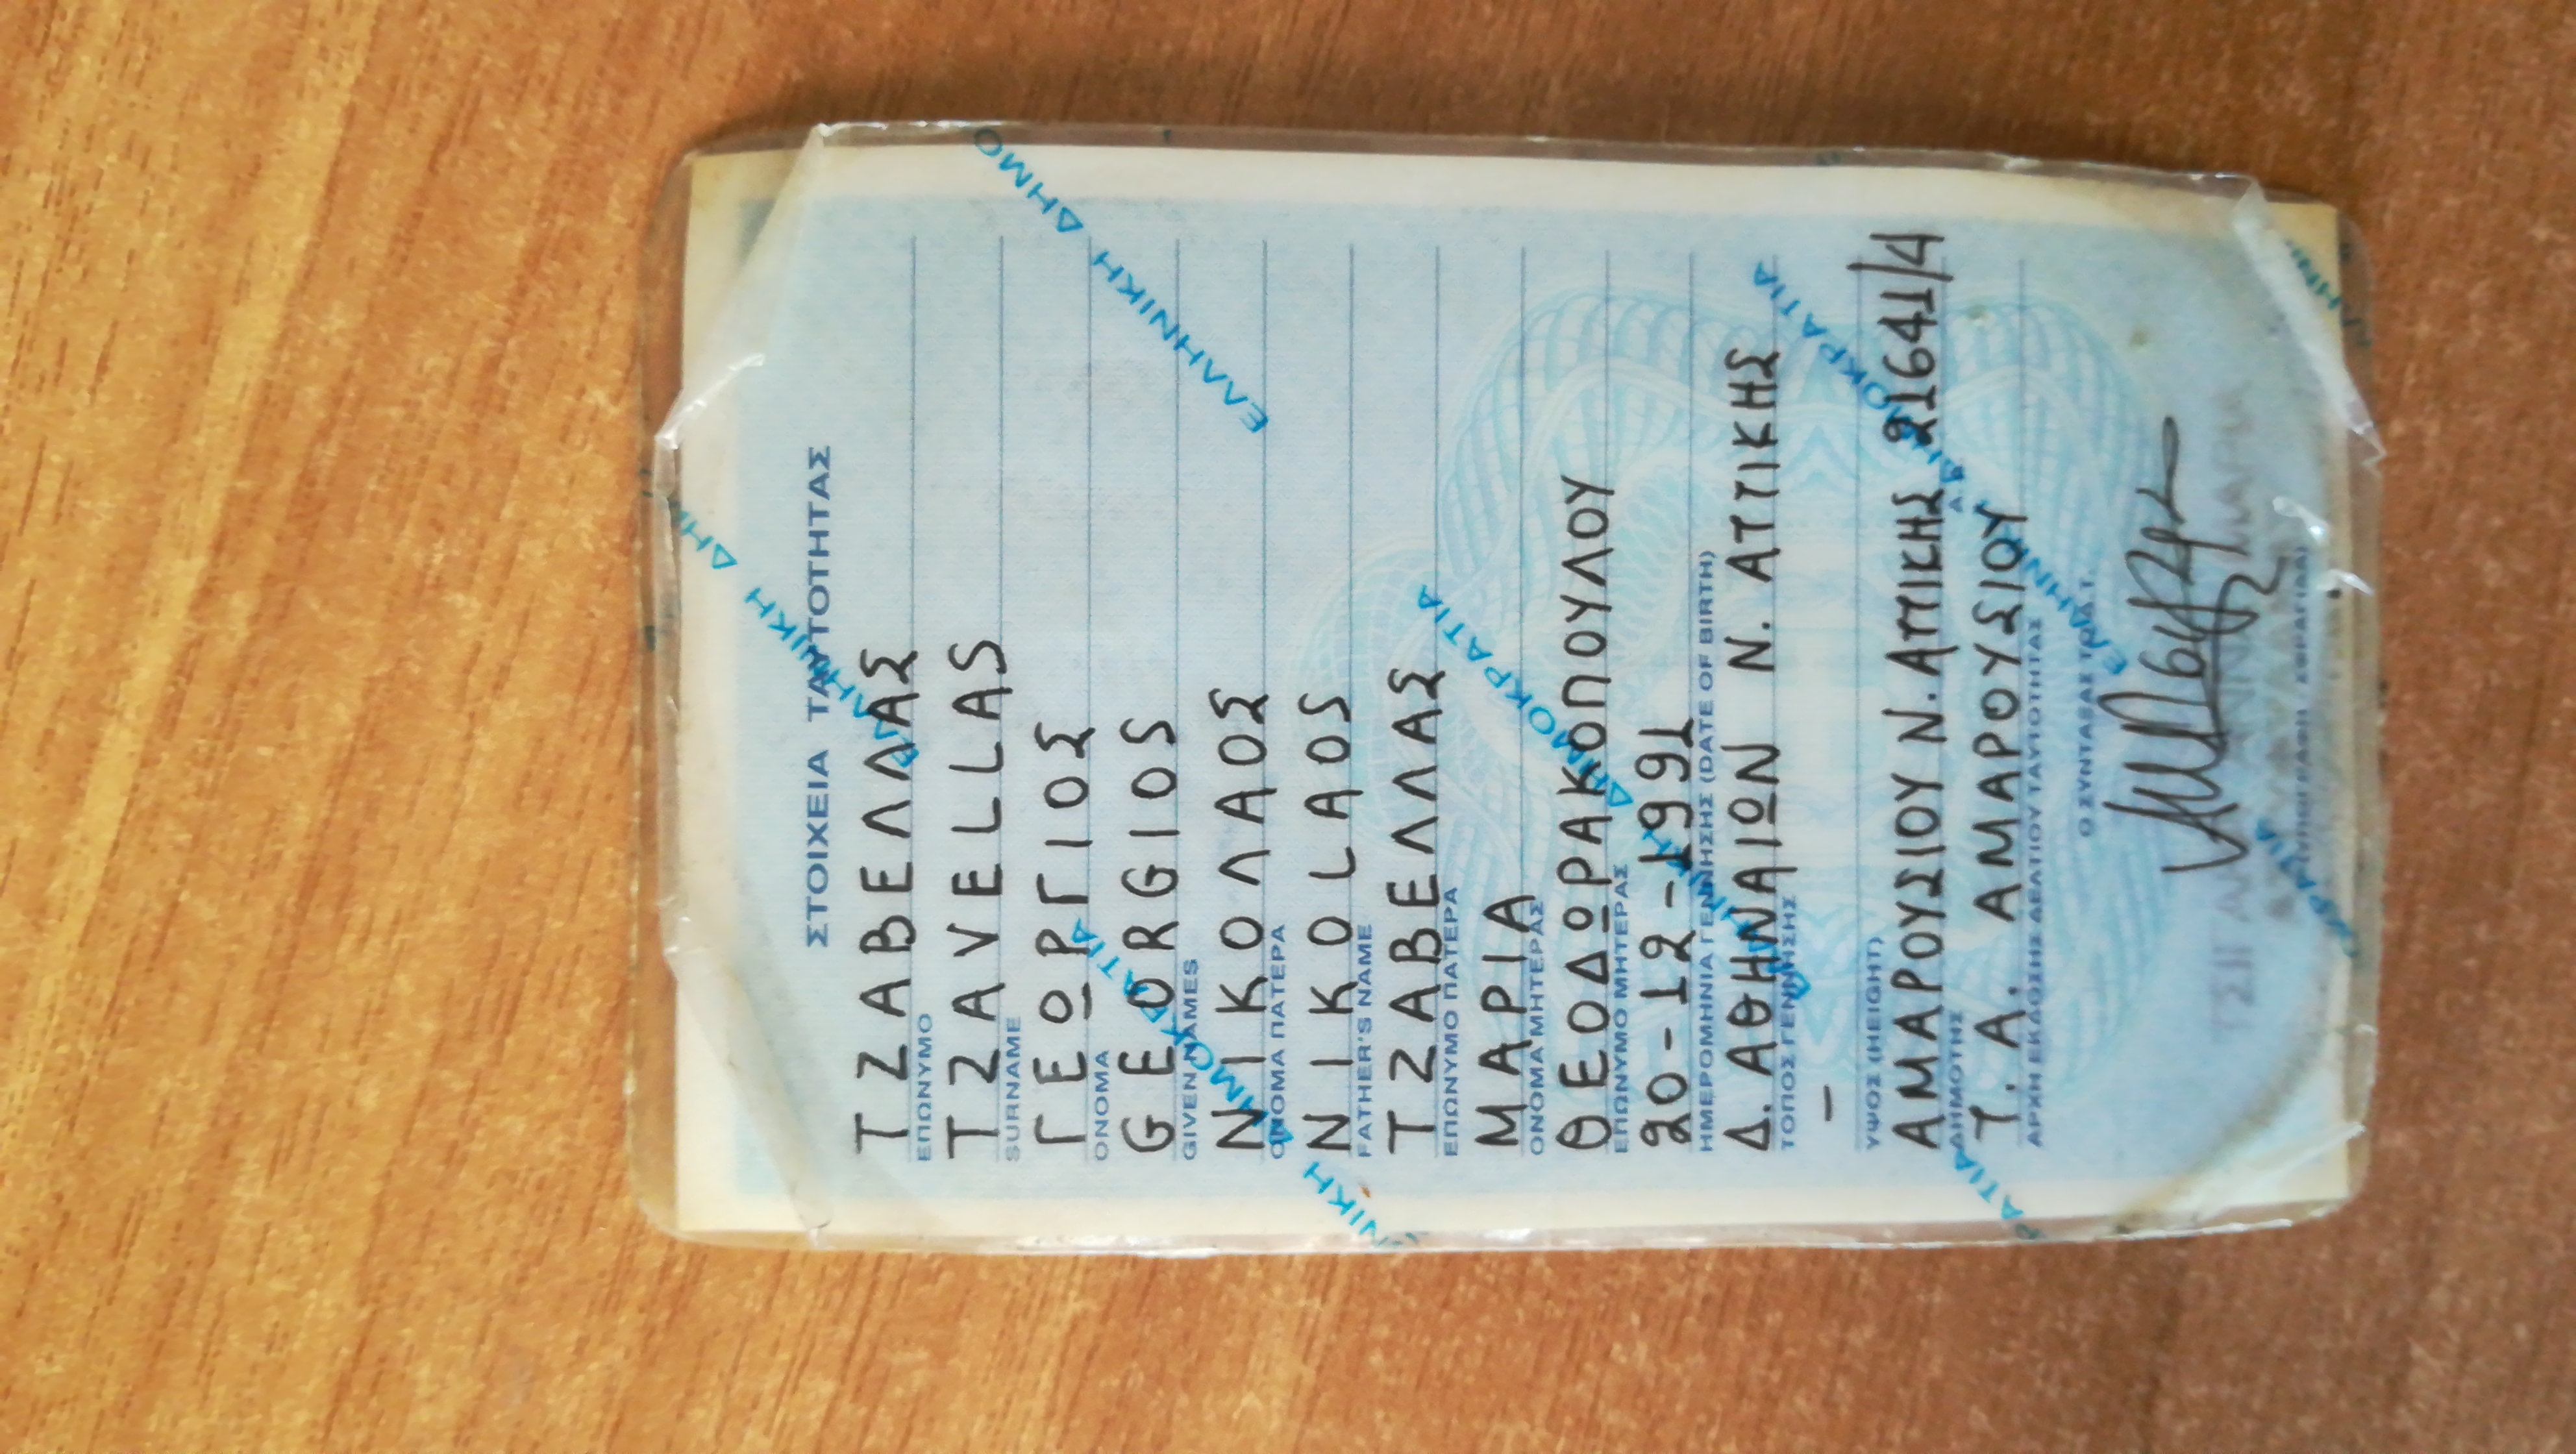 ΣΤΟΙΧΕΙΑ ΤΑΥΤΟΤΗΤΑΣ
ΤΖΑΒΕΛΛΑΣ
ΕΠΩΝΥΜΟ
TZAVELLAS
SURNAME
ΓΕΩΡΓΙΟΣ
ΟΝΟΜΑ
GEORGIOS
GIVEN NAMES
ΝΙΚΟΛΑΟΣ
ΟΝΟΜΑ ΠΑΤΕΡΑ
NIKOLAOS
FATHER'S NAME
ΤΖΑΒΕΛΛΑΣ
ΕΠΩΝΥΜΟ ΠΑΤΕΡΑ
ΜΑΡΙΑ
ΟΝΟΜΑ ΜΗΤΕΡΑΣ
ΘΕΟΔΩΡΑΚΟΠΟΥΛΟΥ
ΕΠΩΝΥΜΟ ΜΗΤΕΡΑΣ
20-12-1991
ΗΜΕΡΟΜΗΝΙΑ ΓΕΝΝΗΣΗΣ (DATE OF BIRTH)
Δ. ΑΘΗΝΑΙΩΝ Ν. ΑΤΤΙΚΗΣ
ΤΟΠΟΣ ΓΕΝΝΗΣΗΣ
-
ΥΨΟΣ (HEIGHT)
ΑΜΑΡΟΥΣΙΟΥ Ν. ΑΤΤΙΚΗΣ 21641/4
ΔΗΜΟΤΗΣ
Τ. Α. ΑΜΑΡΟΥΣΙΟΥ
ΑΡΧΗ ΕΚΔΟΣΗΣ ΔΕΛΤΙΟΥ ΤΑΥΤΟΤΗΤΑΣ
Ο ΣΥΝΤΑΞΑΣ ΤΟ Δ.Τ.
ΕΛΛΗΝΙΚΗ ΔΗΜΟ
ΕΛΛΗΝΙΚΗ ΔΗΜ
ΔΗΜΟΚΡΑΤΙΑ
ΔΗΜΟΚΡΑΤΙΑ